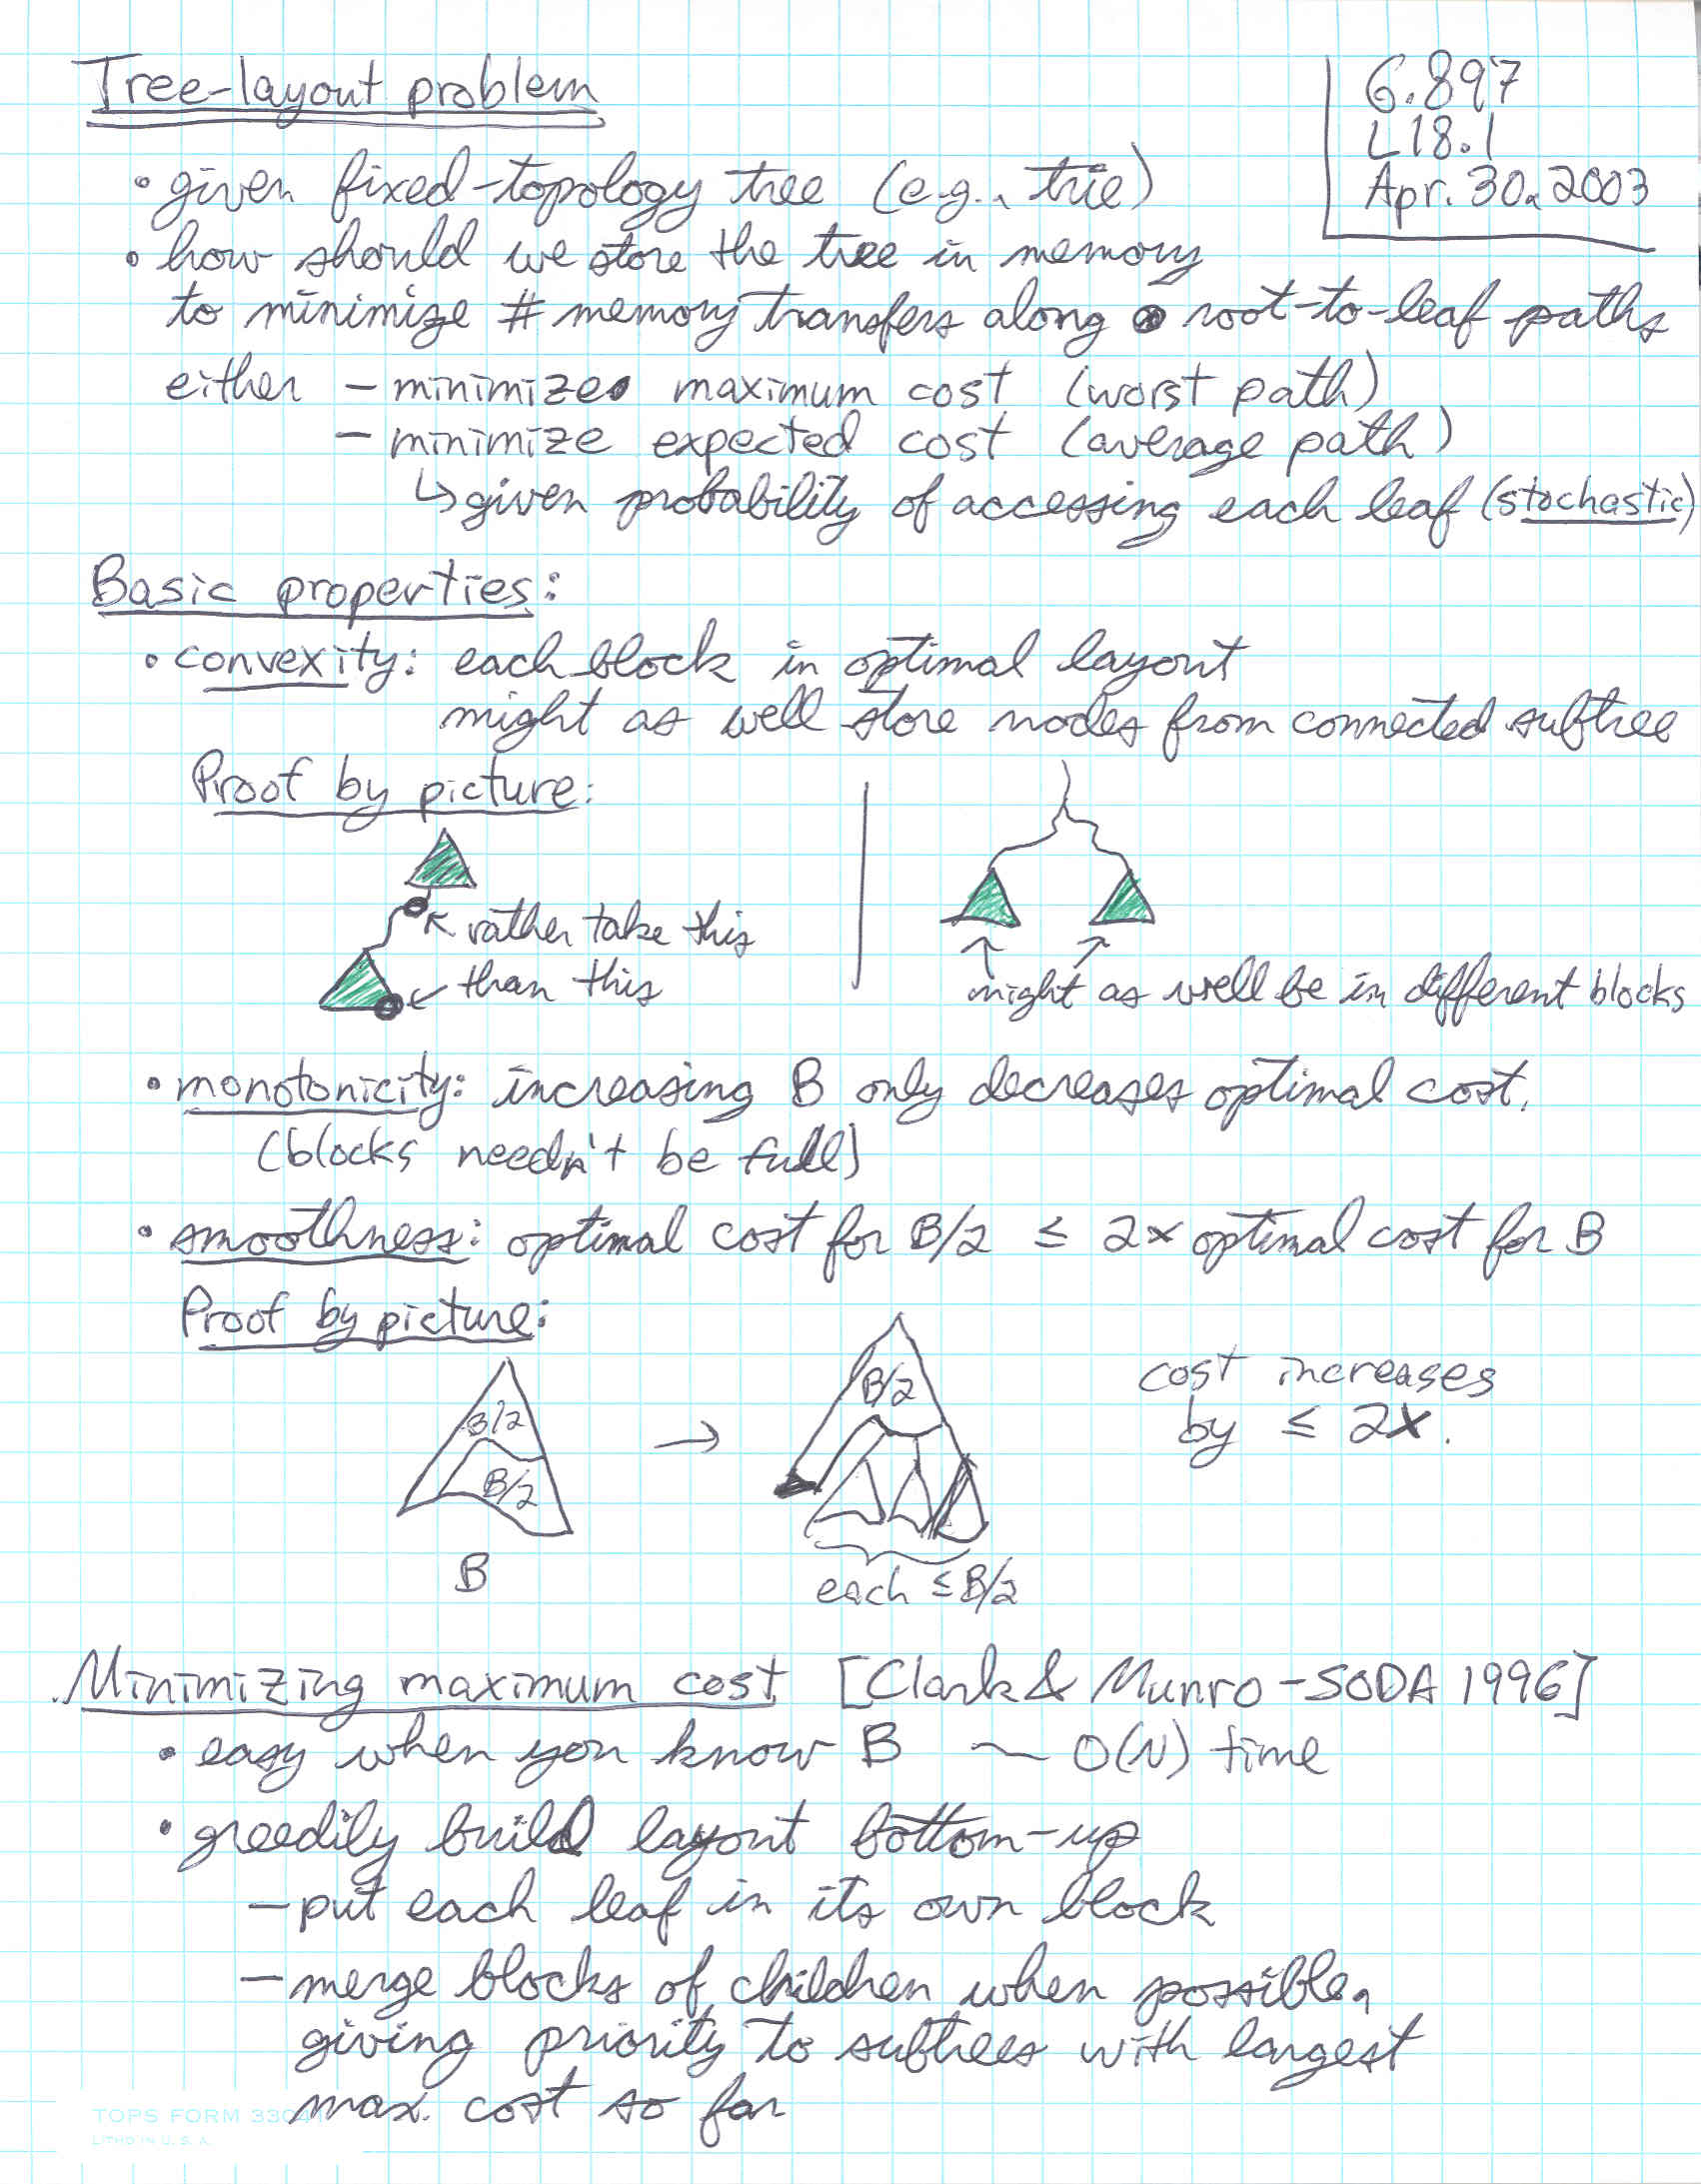 Tree-layout problem
6.897
L18.1
Apr. 30, 2003
• given fixed-topology tree (e.g., trie)
• how should we store the tree in memory
to minimize # memory transfers along root-to-leaf paths
either – minimize maximum cost (worst path)
– minimize expected cost (average path)
↳ given probability of accessing each leaf (stochastic)
Basic properties:
• convexity: each block in optimal layout
might as well store nodes from connected subtree
Proof by picture:
rather take this
than this
might as well be in different blocks
• monotonicity: increasing B only decreases optimal cost.
(blocks needn't be full)
• smoothness: optimal cost for B/2 ≤ 2x optimal cost for B
Proof by picture:
B/2
B/2
B
→
B/2
each ≤ B/2
cost increases
by ≤ 2x.
Minimizing maximum cost [Clark & Munro – SODA 1996]
• easy when you know B ~ O(N) time
• greedily build layout bottom-up
– put each leaf in its own block
– merge blocks of children when possible,
giving priority to subtrees with largest
max. cost so far
TOPS FORM 3304
LITHO IN U. S. A.